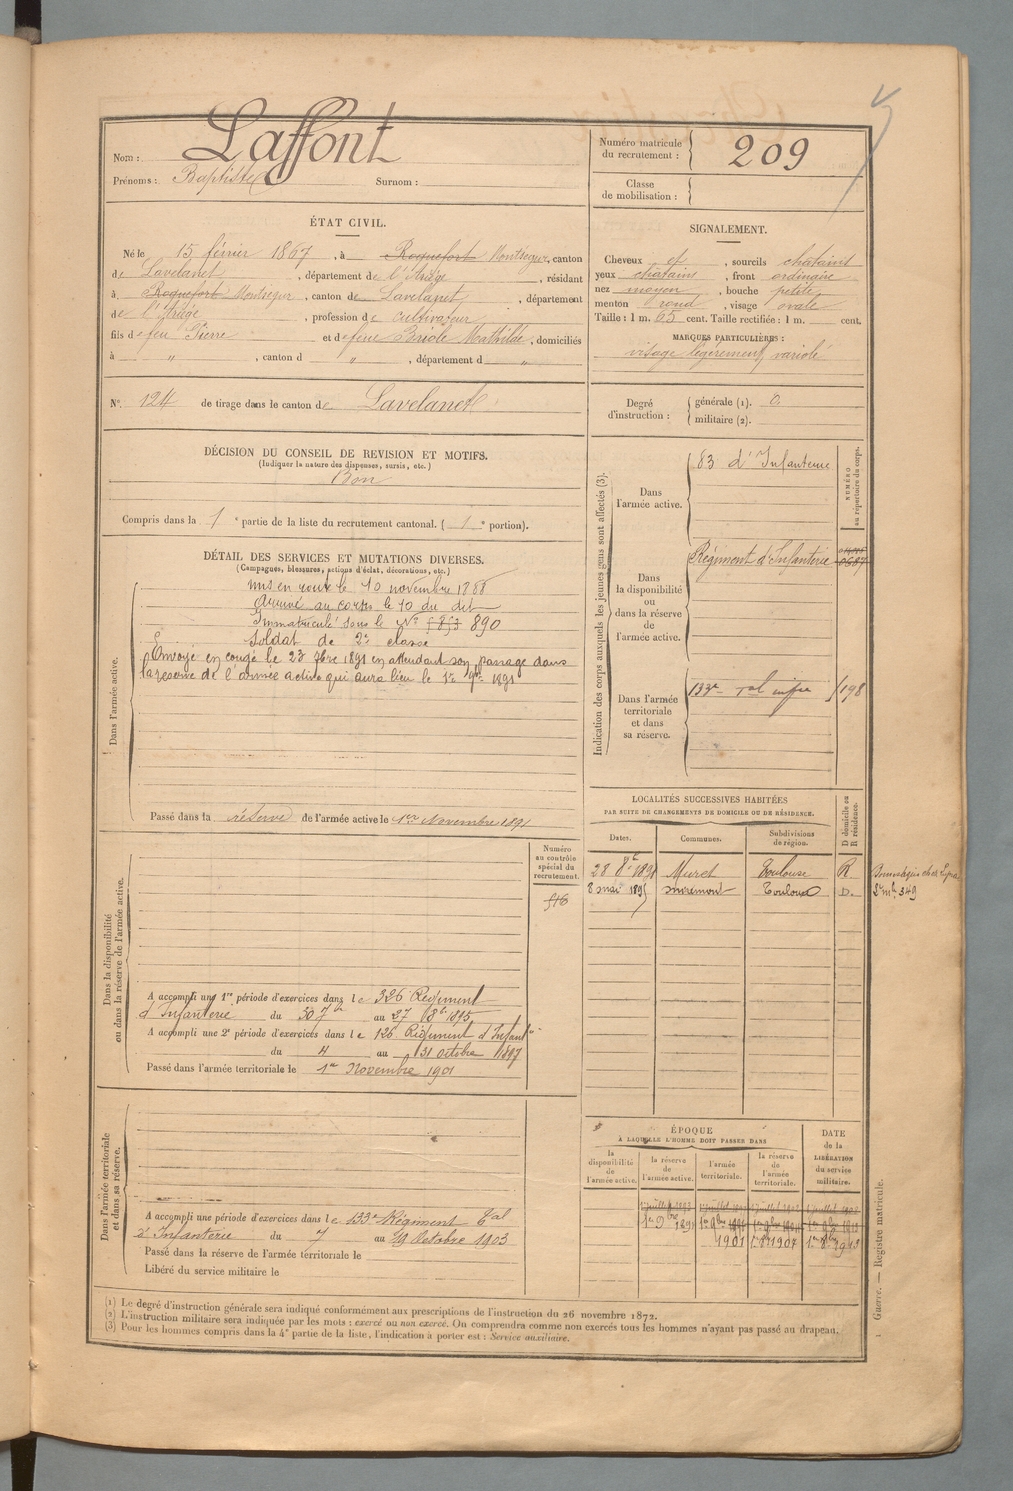 Nom : Laffont
Prénoms : Baptiste Surnom :
Numéro matricule du recrutement : 209
Classe de mobilisation :
ÉTAT CIVIL.
Né le 15 février 1867, à Roquefort Montségur, canton
de Lavelanet, département de l'Ariège, résidant
à Roquefort Montségur, canton de Lavelanet, département
de l'Ariège, profession de cultivateur
fils de feu Pierre et de feue Briole Mathilde, domiciliés
à ", canton d ", département d "
SIGNALEMENT.
Cheveux et, sourcils chatains
yeux chatains, front ordinaire
nez moyen, bouche petite
menton rond, visage ovale
Taille : 1 m. 65 cent. Taille rectifiée : 1 m. cent.
MARQUES PARTICULIÈRES :
visage légèrement variolé
N° 124 de tirage dans le canton de Lavelanet
Degré d'instruction :
générale (1). 0
militaire (2).
DÉCISION DU CONSEIL DE REVISION ET MOTIFS.
(Indiquer la nature des dispenses, sursis, etc.)
Bon
Compris dans la 1e partie de la liste du recrutement cantonal. ( 1e portion).
DÉTAIL DES SERVICES ET MUTATIONS DIVERSES.
(Campagnes, blessures, actions d'éclat, décorations, etc.)
Dans l'armée active.
Mis en route le 10 novembre 1888
Arrivé au corps le 10 du dit
Immatriculé sous le N° 890
Soldat de 2e classe
Envoyé en congé le 23 7bre 1891 en attendant son passage dans
la réserve de l'armée active qui aura lieu le 1er 9bre 1891
Passé dans la réserve de l'armée active le 1er Novembre 1891
Indication des corps auxquels les jeunes gens sont affectés (3).
NUMÉRO au répertoire du corps.
Dans l'armée active.
83 d'Infanterie
Dans la disponibilité ou dans la réserve de l'armée active.
Régiment d'Infanterie
Dans l'armée territoriale et dans sa réserve.
133e Tal infie 198
LOCALITÉS SUCCESSIVES HABITÉES
PAR SUITE DE CHANGEMENTS DE DOMICILE OU DE RÉSIDENCE.
Dates. Communes. Subdivisions de région. D domicile ou R résidence.
28 8bre 1891 Muret Toulouse R
8 mai 1895 miremont Toulouse D.
349
Numéro au contrôle spécial du recrutement.
516
Dans la disponibilité ou dans la réserve de l'armée active.
A accompli une 1re période d'exercices dans le 326 Régiment
d'Infanterie du 30 7bre au 27 8bre 1895
A accompli une 2e période d'exercices dans le 126 Régiment d'Infanie
du 4 au 31 octobre 1897
Passé dans l'armée territoriale le 1er Novembre 1901
Dans l'armée territoriale et dans sa réserve.
A accompli une période d'exercices dans le 133e Régiment Tal
d'Infanterie du 7 au 19 Octobre 1903
Passé dans la réserve de l'armée territoriale le
Libéré du service militaire le
ÉPOQUE
À LAQUELLE L'HOMME DOIT PASSER DANS
la disponibilité de l'armée active.
la réserve de l'armée active.
l'armée territoriale.
la réserve de l'armée territoriale.
DATE de la LIBÉRATION du service militaire.
1er 9bre 1891
1901 1er 1907
(1) Le degré d'instruction générale sera indiqué conformément aux prescriptions de l'instruction du 26 novembre 1872.
(2) L'instruction militaire sera indiquée par les mots : exercé ou non exercé. On comprendra comme non exercés tous les hommes n'ayant pas passé au drapeau.
(3) Pour les hommes compris dans la 4e partie de la liste, l'indication à porter est : Service auxiliaire.
Guerre. — Registre matricule.